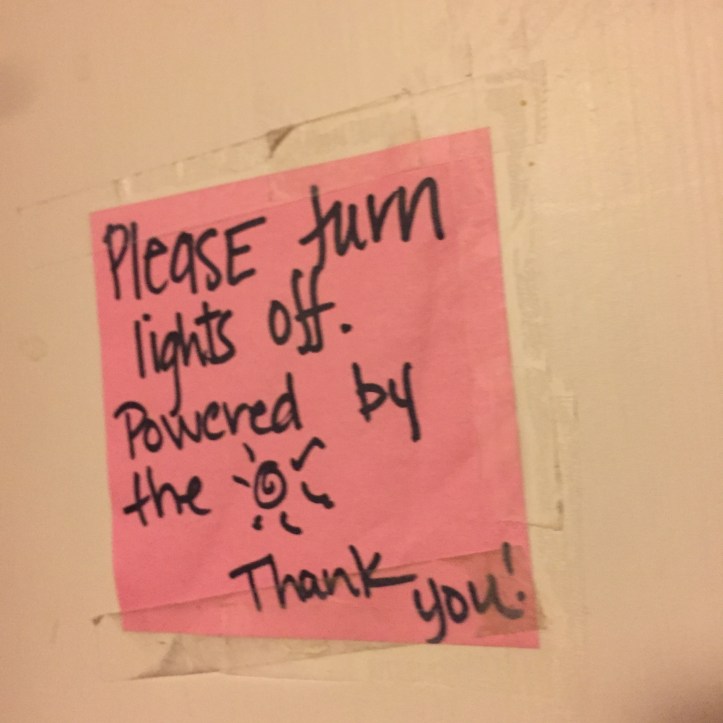 PleasE turn
lights off.
Powered by
the
Thank you!